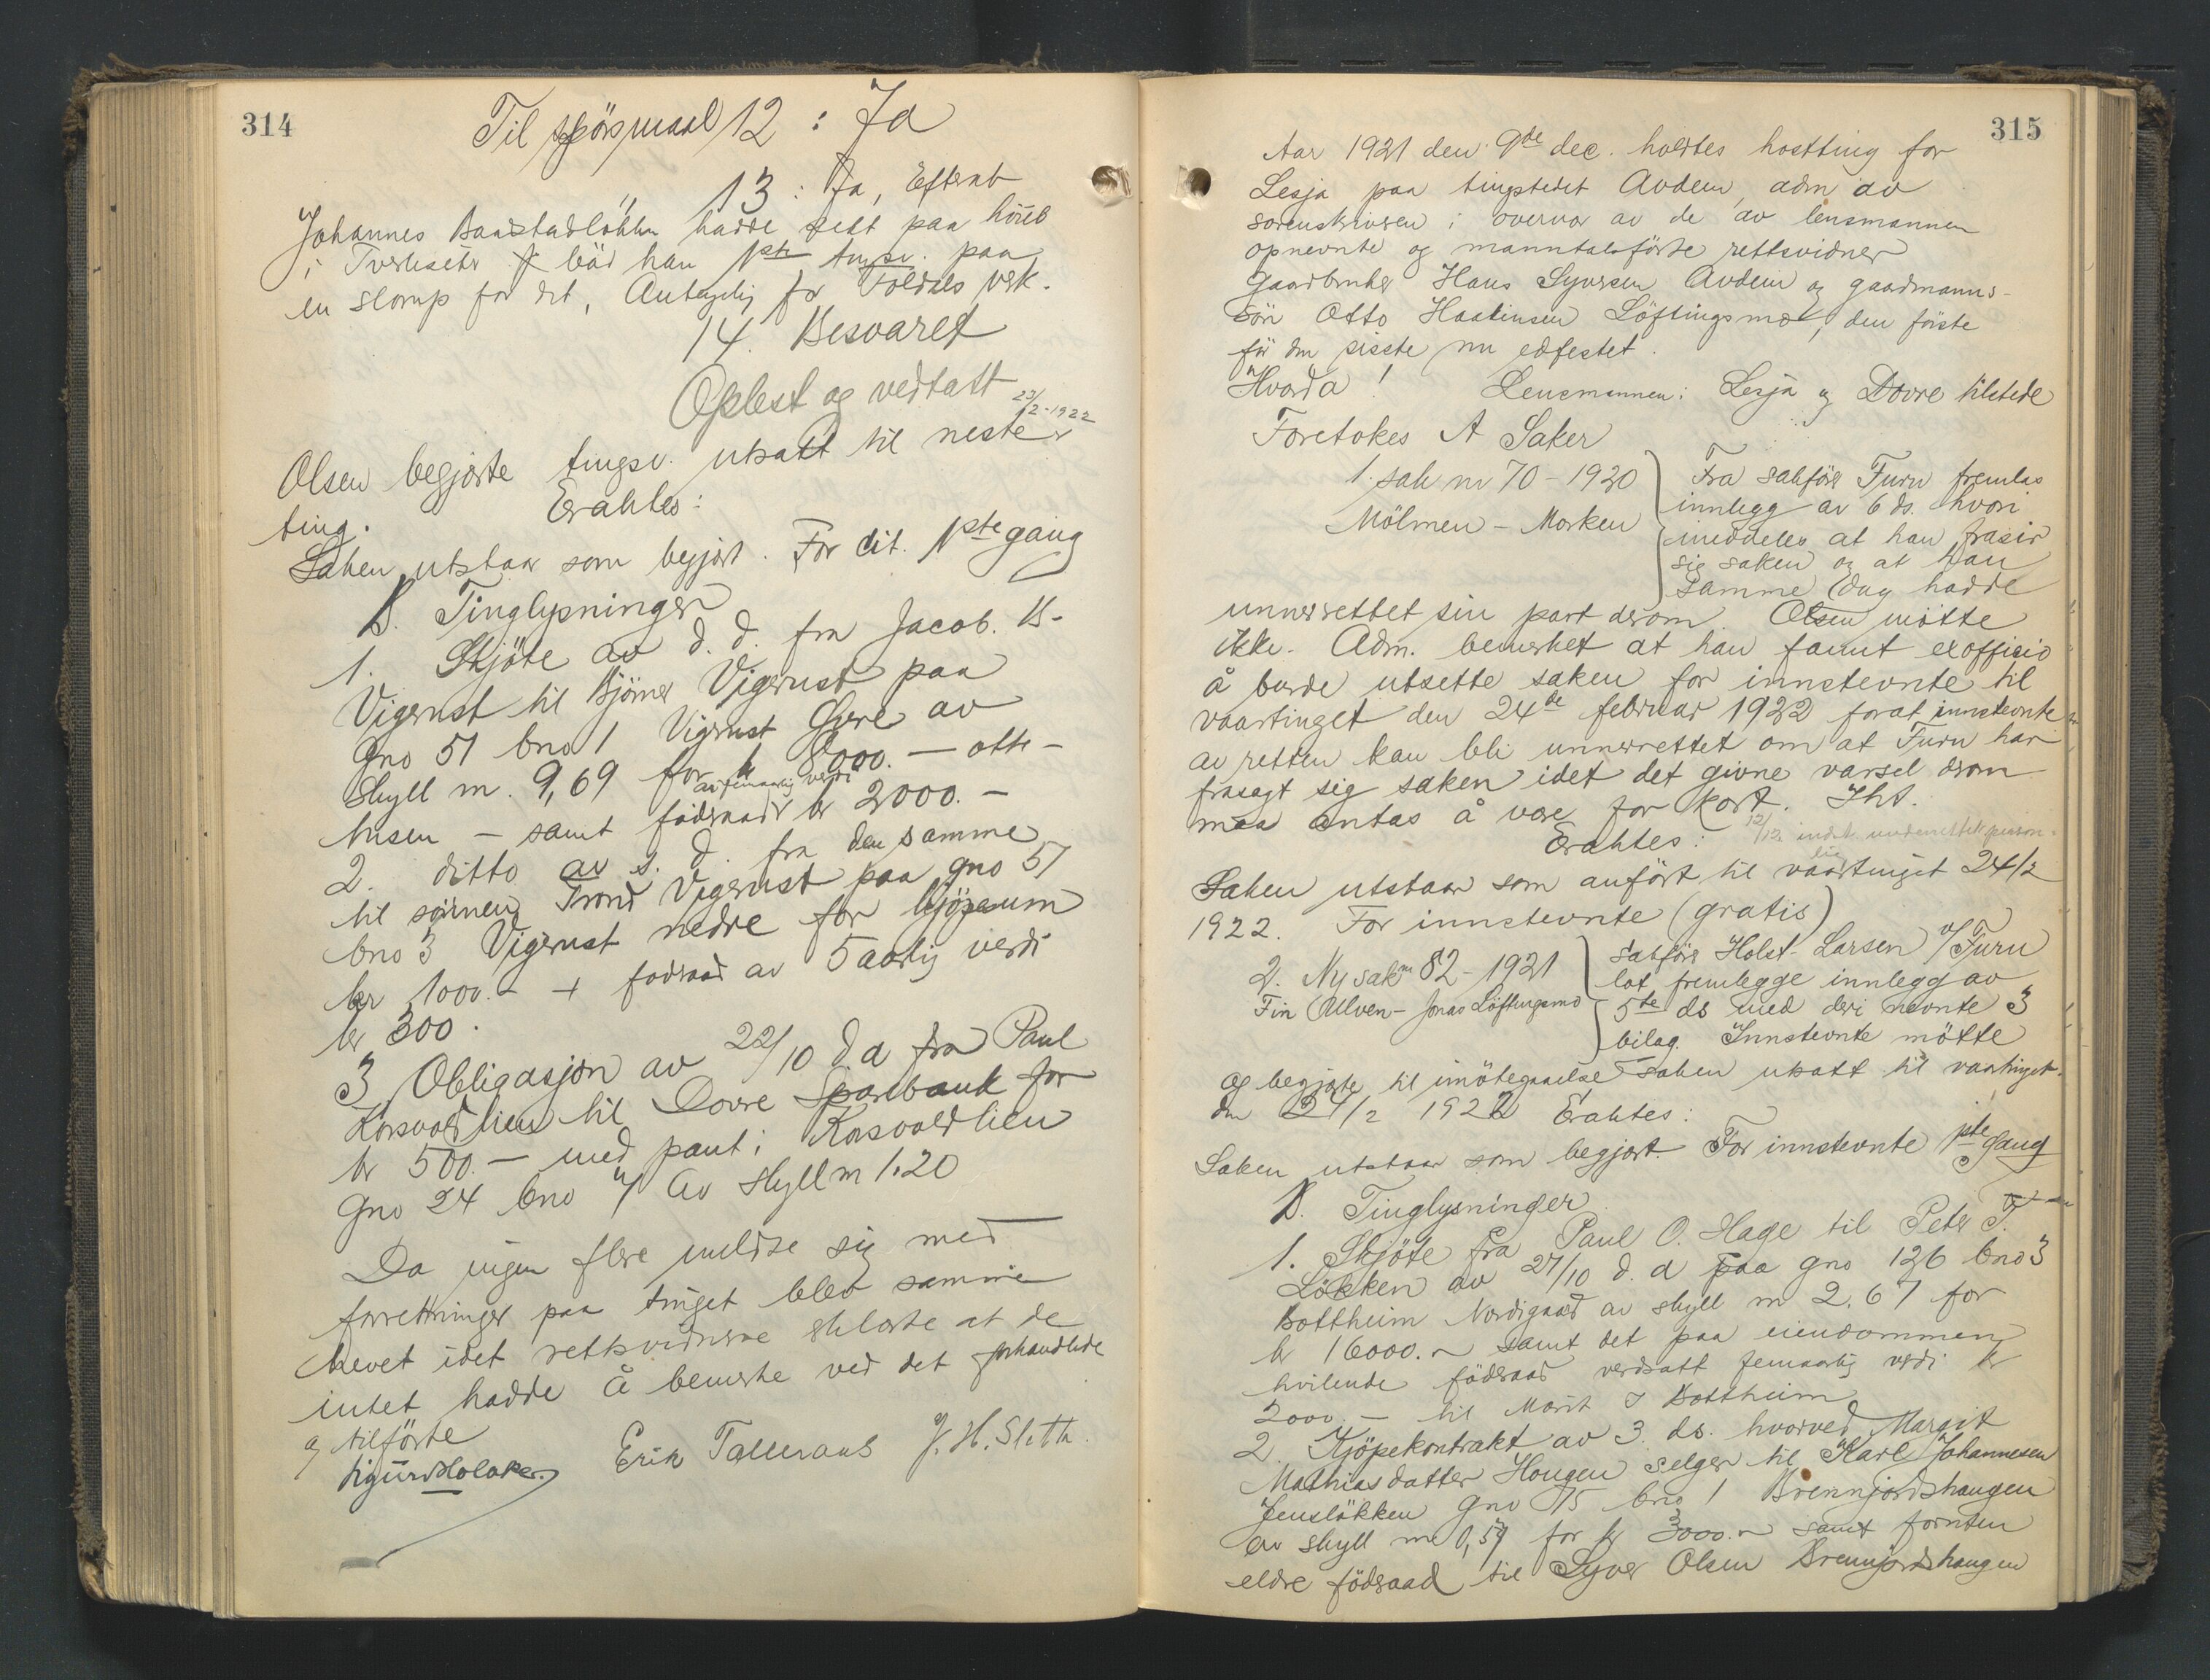 314
Til spörsmaal 12 : Ja
" 13 : Ja, Efterat
Johannes Baastadlökken hadde sett paa
i Tverliseter bad han 1ste tingsv. paa
en slomp for det, Antagelig for Foldals verk.
14. Besvaret
Oplest og vedtatt
23/2-1922
Olsen begjærte tingsv. utsatt til neste
ting. Eraktes:
Saken utstaar som begjært. For cit. 1ste gang
B. Tinglysninger
1. Skjöte av d. d. fra Jacob. B.
Vigerust til Björner Vigerust paa
gno 51 bno 1 Vigerust övre av
skyld m. 9,69 for kr 8000.— otte-
av femaarlig verdi
tusen — samt föderaad kr 2000.—
2. ditto av s. d. fra den samme
til sönnen Trond Vigerust paa gno 51
bno 3 Vigerust nedre for kjöpesum
kr 1000.- + foderaad av 5 aarlig verdi
kr 300.
3 Obligasjon av 22/10 d a fra Paul
Korsvoldlien til Dovre Sparebank for
kr 500.— med pant i Korsvoldlien
gno 24 bno 4 av skyld m 1.20
Da ingen flere meldte sig med
forretninger paa tinget blev samme
hevet idet rettsvidnerne erklærte at de
intet hadde å bemerke ved det forhandlede
og tilförte
Sigurd Holaker. Erik Talleraas J. H. Sletta.
315
Aar 1921 den 9de dec. holdtes hostting for
Lesja paa tingstedet Avdem, adm av
sorenskriveren i overvær av de av lensmannen
opnevnte og manntalsförte rettsvidner
Gaardbruker Hans Syversen Avdem og gaardmanns-
sön Otto Haakensen Löftingsmo, den förste
för den sisste nu edfestet.
Hvorda! Lensmannen i Lesja og Dovre tilstede
Foretokes A Saker
1. sak nr 70 - 1920
Mölmen - Morken
Fra sakförer Furu fremlas
innlegg av 6 ds. hvori
meddeles at han frasir
sig saken og at han
samme dag hadde
unnerrettet sin part derom. Olsen mötte
ikke. Adm. bemerket at han fannt exofficio
å burde utsette saken for innstevnte til
vaartinget den 24de februar 1922 forat innstevnte
av retten kan bli unnerrettet om at Furu har
frasagt sig saken idet det givne varsel derom
maa antas å være for kort. Iht.
Eraktes: 12/12 indst. underrettet person-
lig
Saken utstaar som anfört til vaartinget 24/2
1922. For innstevnte (gratis)
2. Ny sak nr 82 - 1921
Fin Ulven - Jonas Löftingsmo
Sakförer Holst-Larsen v/ Furu
lot fremlegge innlegg av
5te ds med deri nevnte 3
bilag. Innstevnte mötte
og begjærte til imötegaaelse saken utsatt til vaartinget.
den 24/2 1922 Eraktes:
Saken utstaar som begjært. For innstevnte 1ste gang
B. Tinglysninger
1. Skjöte fra Paul O. Hage til Peter T.
Lökken av 27/10 d. a paa gno 126 bno 3
Bottheim Nordigaard av skyld m 2.67 for
kr 16000.- samt det paa eiendommen
hvilende föderaad verdsatt femaarlig verdi kr
2000.— til Marit J Bottheim
2. Kjöpekontrakt av 3. ds. hvorved Margit
Mathiasdatter Hougen selger til Karl Johannesen
Jenslökken gno 75 bno 1 Brennjordshaugen
av skyld m 0,57 for kr 3000.- samt foruten
eldre föderaad til Syver Olsen Brennjordshaugen